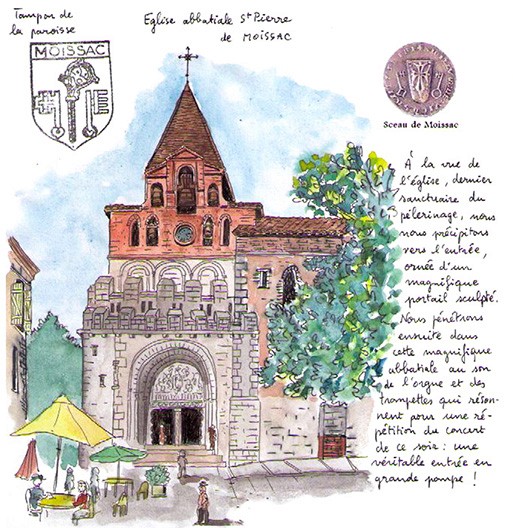 Tampon de
la paroisse
MOISSAC
Eglise abbatiale St Pierre
de MOISSAC
Sceau de Moissac
À la vue de
l'église, dernier
sanctuaire du
pèlerinage, nous
nous précipitons
vers l'entrée,
ornée d'un
magnifique
portail sculpté.
Nous pénétrons
ensuite dans
cette magnifique
abbatiale au son
de l'orgue et des
trompettes qui réson-
nent pour une ré-
pétition du concert
de ce soir : une
véritable entrée en
grande pompe !